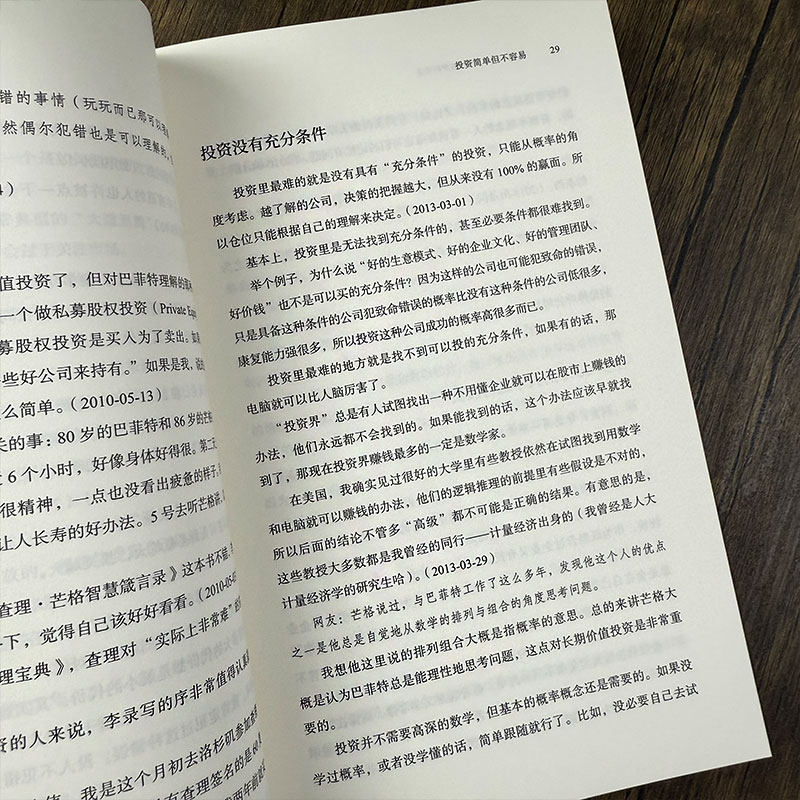 错的事情（玩玩而已那可以
然偶尔犯错也是可以理解的
值投资了，但对巴菲特理解的
一个做私募股权投资（Private Equ
募股权投资是买入为了卖出。
些好公司来持有。”如果是我，
么简单。（2010-05-13）
关的事：80岁的巴菲特和86岁的芒格
6个小时，好像身体好得很。第二
很精神，一点也没看出疲惫的样子。
让人长寿的好办法。5号去听芒格讲
查理·芒格智慧箴言录》这本书不错，
一下，觉得自己该好好看看。（2010-05-
理宝典》，查理对“实际上非常难”
资的人来说，李录写的序非常值得认真
我是这个月初去洛杉矶参加
有查理签名的是60
投资简单但不容易 29
投资没有充分条件
投资里最难的就是没有具有“充分条件”的投资，只能从概率的角
度考虑。越了解的公司，决策的把握越大，但从来没有100%的赢面。所
以仓位只能根据自己的理解来决定。（2013-03-01）
基本上，投资里是无法找到充分条件的，甚至必要条件都很难找到。
举个例子，为什么说“好的生意模式、好的企业文化、好的管理团队、
好价钱”也不是可以买的充分条件？因为这样的公司也可能犯致命的错误，
只是具备这种条件的公司犯致命错误的概率比没有这种条件的公司低很多，
康复能力强很多，所以投资这种公司成功的概率高很多而已。
投资里最难的地方就是找不到可以投的充分条件，如果有的话，那
电脑就可以比人脑厉害了。
“投资界”总是有人试图找出一种不用懂企业就可以在股市上赚钱的
办法，他们永远都不会找到的。如果能找到的话，这个办法应该早就找
到了，那现在投资界赚钱最多的一定是数学家。
在美国，我确实见过很好的大学里有些教授依然在试图找到用数学
和电脑就可以赚钱的办法，他们的逻辑推理的前提里有些假设是不对的，
所以后面的结论不管多“高级”都不可能是正确的结果。有意思的是，
这些教授大多数都是我曾经的同行——计量经济出身的（我曾经是人大
计量经济学的研究生哈）。（2013-03-29）
网友：芒格说过，与巴菲特工作了这么多年，发现他这个人的优点
之一是他总是自觉地从数学的排列与组合的角度思考问题。
我想他这里说的排列组合大概是指概率的意思。总的来讲芒格大
概是认为巴菲特总是能理性地思考问题，这点对长期价值投资是非常重
要的。
投资并不需要高深的数学，但基本的概率概念还是需要的。如果没
学过概率，或者没学懂的话，简单跟随就行了。比如，没必要自己去试